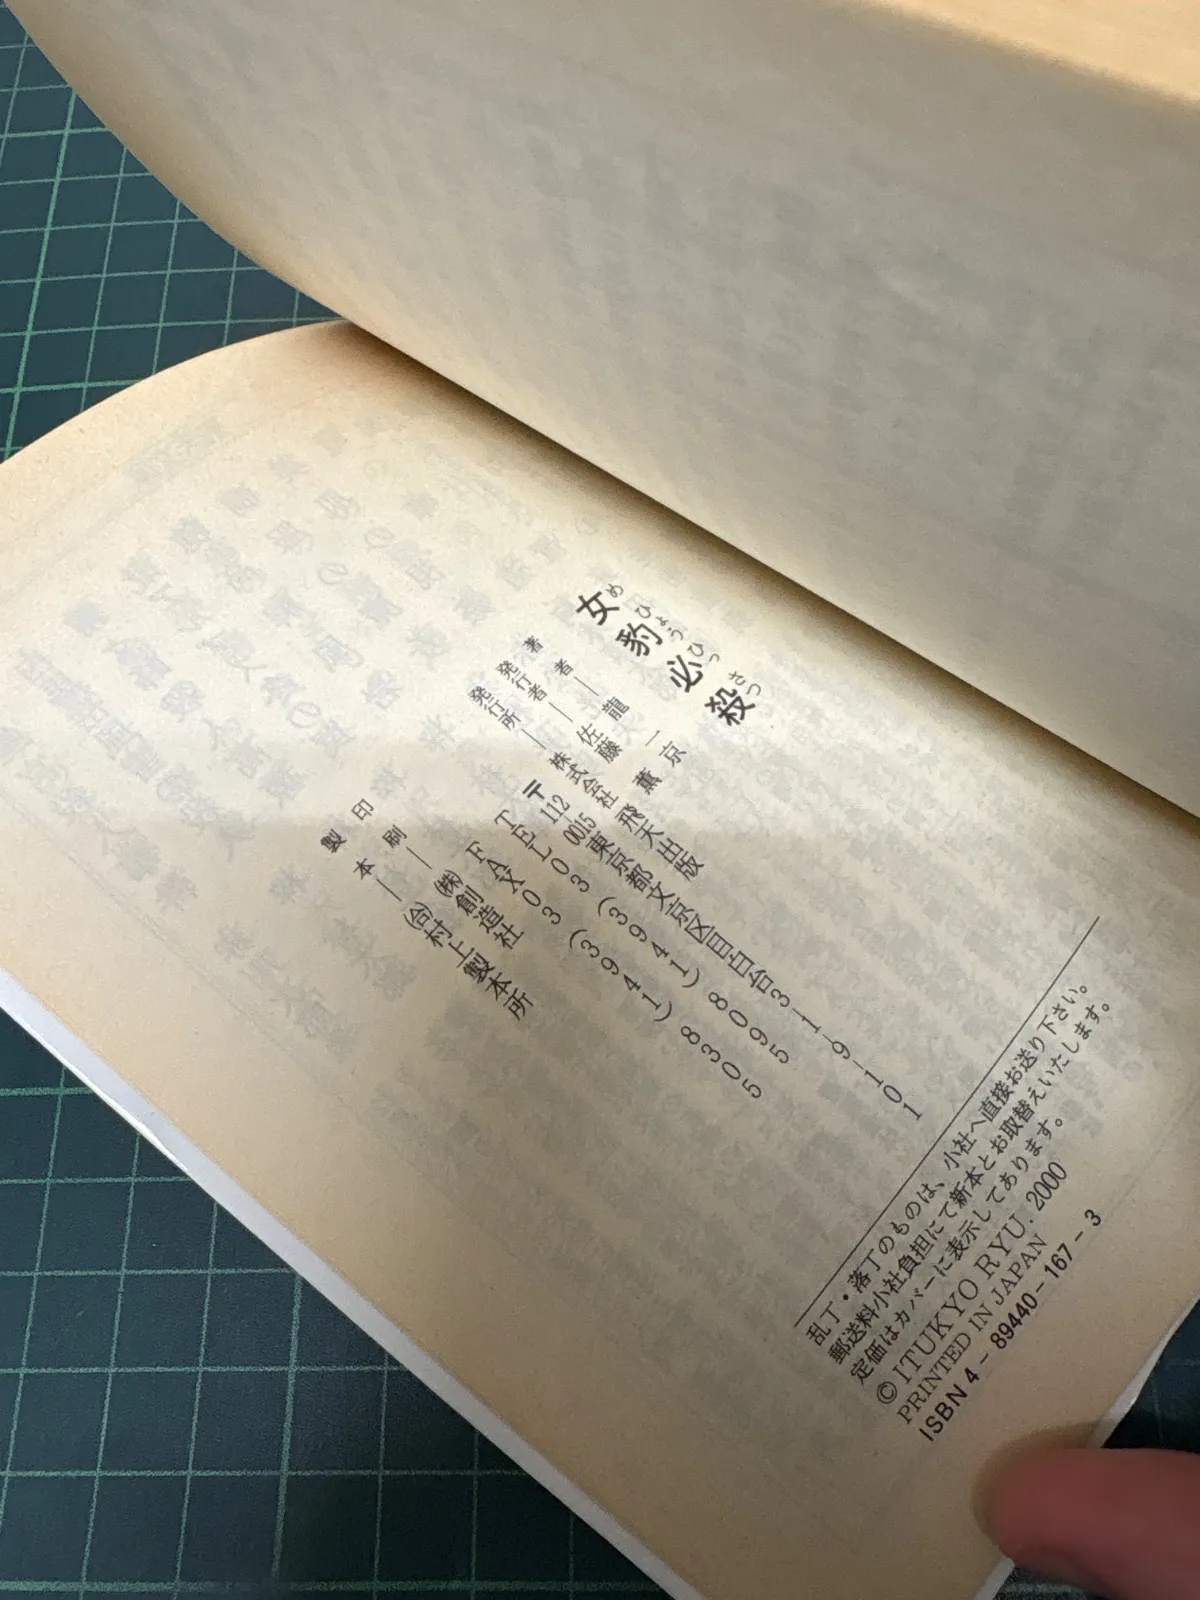 女豹必殺
めひょうひっさつ
著者―龍一京
発行者―佐藤薫
発行所―株式会社飛天出版
〒112-0015東京都文京区目白台3-1-9-101
TEL03(3941)8095
FAX03(3941)8305
印刷―(株)創造社
製本―(合)村上製本所
乱丁・落丁のものは、小社へ直接お送り下さい。
郵送料小社負担にて新本とお取替えいたします。
定価はカバーに表示してあります。
© ITUKYO RYU. 2000
PRINTED IN JAPAN
ISBN4-89440-167-3